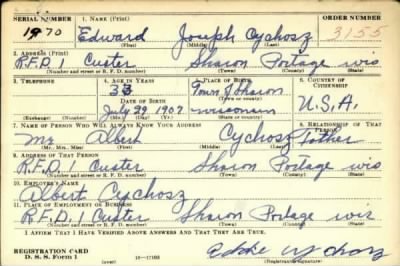 SERIAL NUMBER 1. NAME (Print) ORDER NUMBER
1970 Edward Joseph Cychosz 3155
(First) (Middle) (Last)
2. ADDRESS (Print)
R.F.D. 1 Custer Sharon Portage Wis
(Number and street or R. F. D. number) (Town) (County) (State)
3. TELEPHONE 4. AGE IN YEARS 5. PLACE OF BIRTH 6. COUNTRY OF CITIZENSHIP
33 Town of Sharon
DATE OF BIRTH (Town or county)
July 29 1907 Wisconsin U.S.A.
(Exchange) (Number) (Mo.) (Day) (Yr.) (State or country)
7. NAME OF PERSON WHO WILL ALWAYS KNOW YOUR ADDRESS 8. RELATIONSHIP OF THAT PERSON
Mr Albert Cychosz Father
(Mr., Mrs., Miss) (First) (Middle) (Last)
9. ADDRESS OF THAT PERSON
R.F.D. 1 Custer Sharon Portage Wis
(Number and street or R. F. D. number) (Town) (County) (State)
10. EMPLOYER'S NAME
Albert Cychosz
11. PLACE OF EMPLOYMENT OR BUSINESS
R.F.D. 1 Custer Sharon Portage Wis
(Number and street or R. F. D. number) (Town) (County) (State)
I AFFIRM THAT I HAVE VERIFIED ABOVE ANSWERS AND THAT THEY ARE TRUE.
REGISTRATION CARD
D. S. S. Form 1 (over) 16—17105 (Registrant's signature)